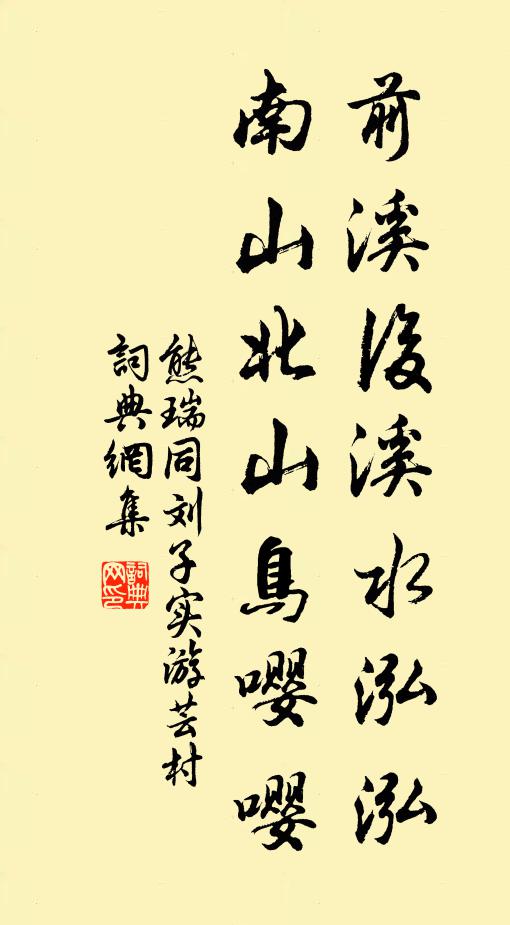 前溪後溪水泓泓
南山北山鳥嚶嚶
熊瑞同刘子实游芸村
詞典網集
詞典网印